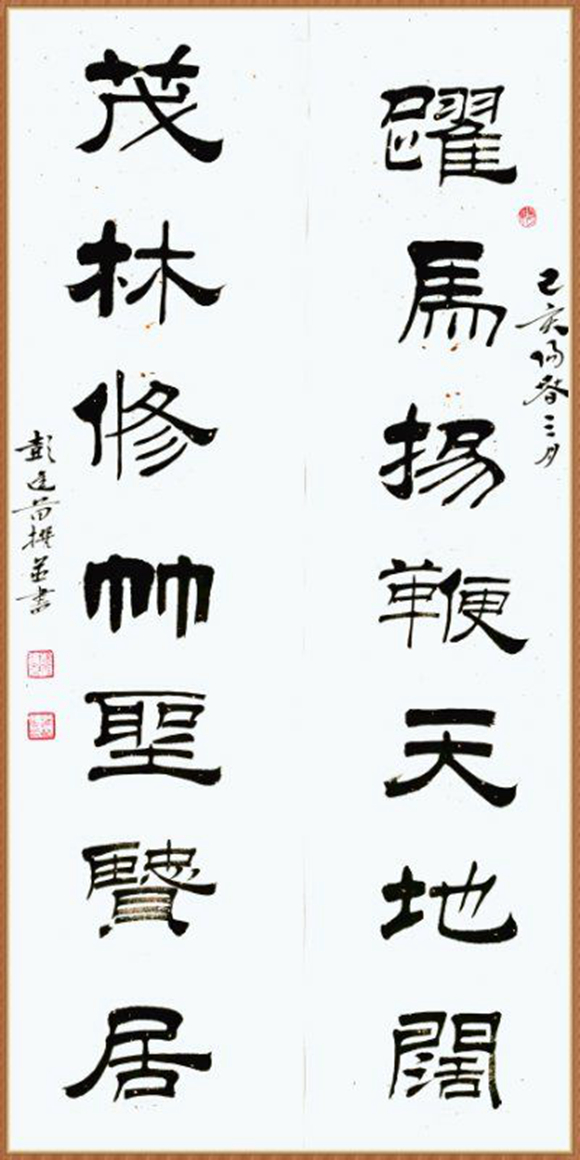 己亥阳春三月
躍馬揚鞭天地闊
茂林修竹聖賢居
彭廷撰並書